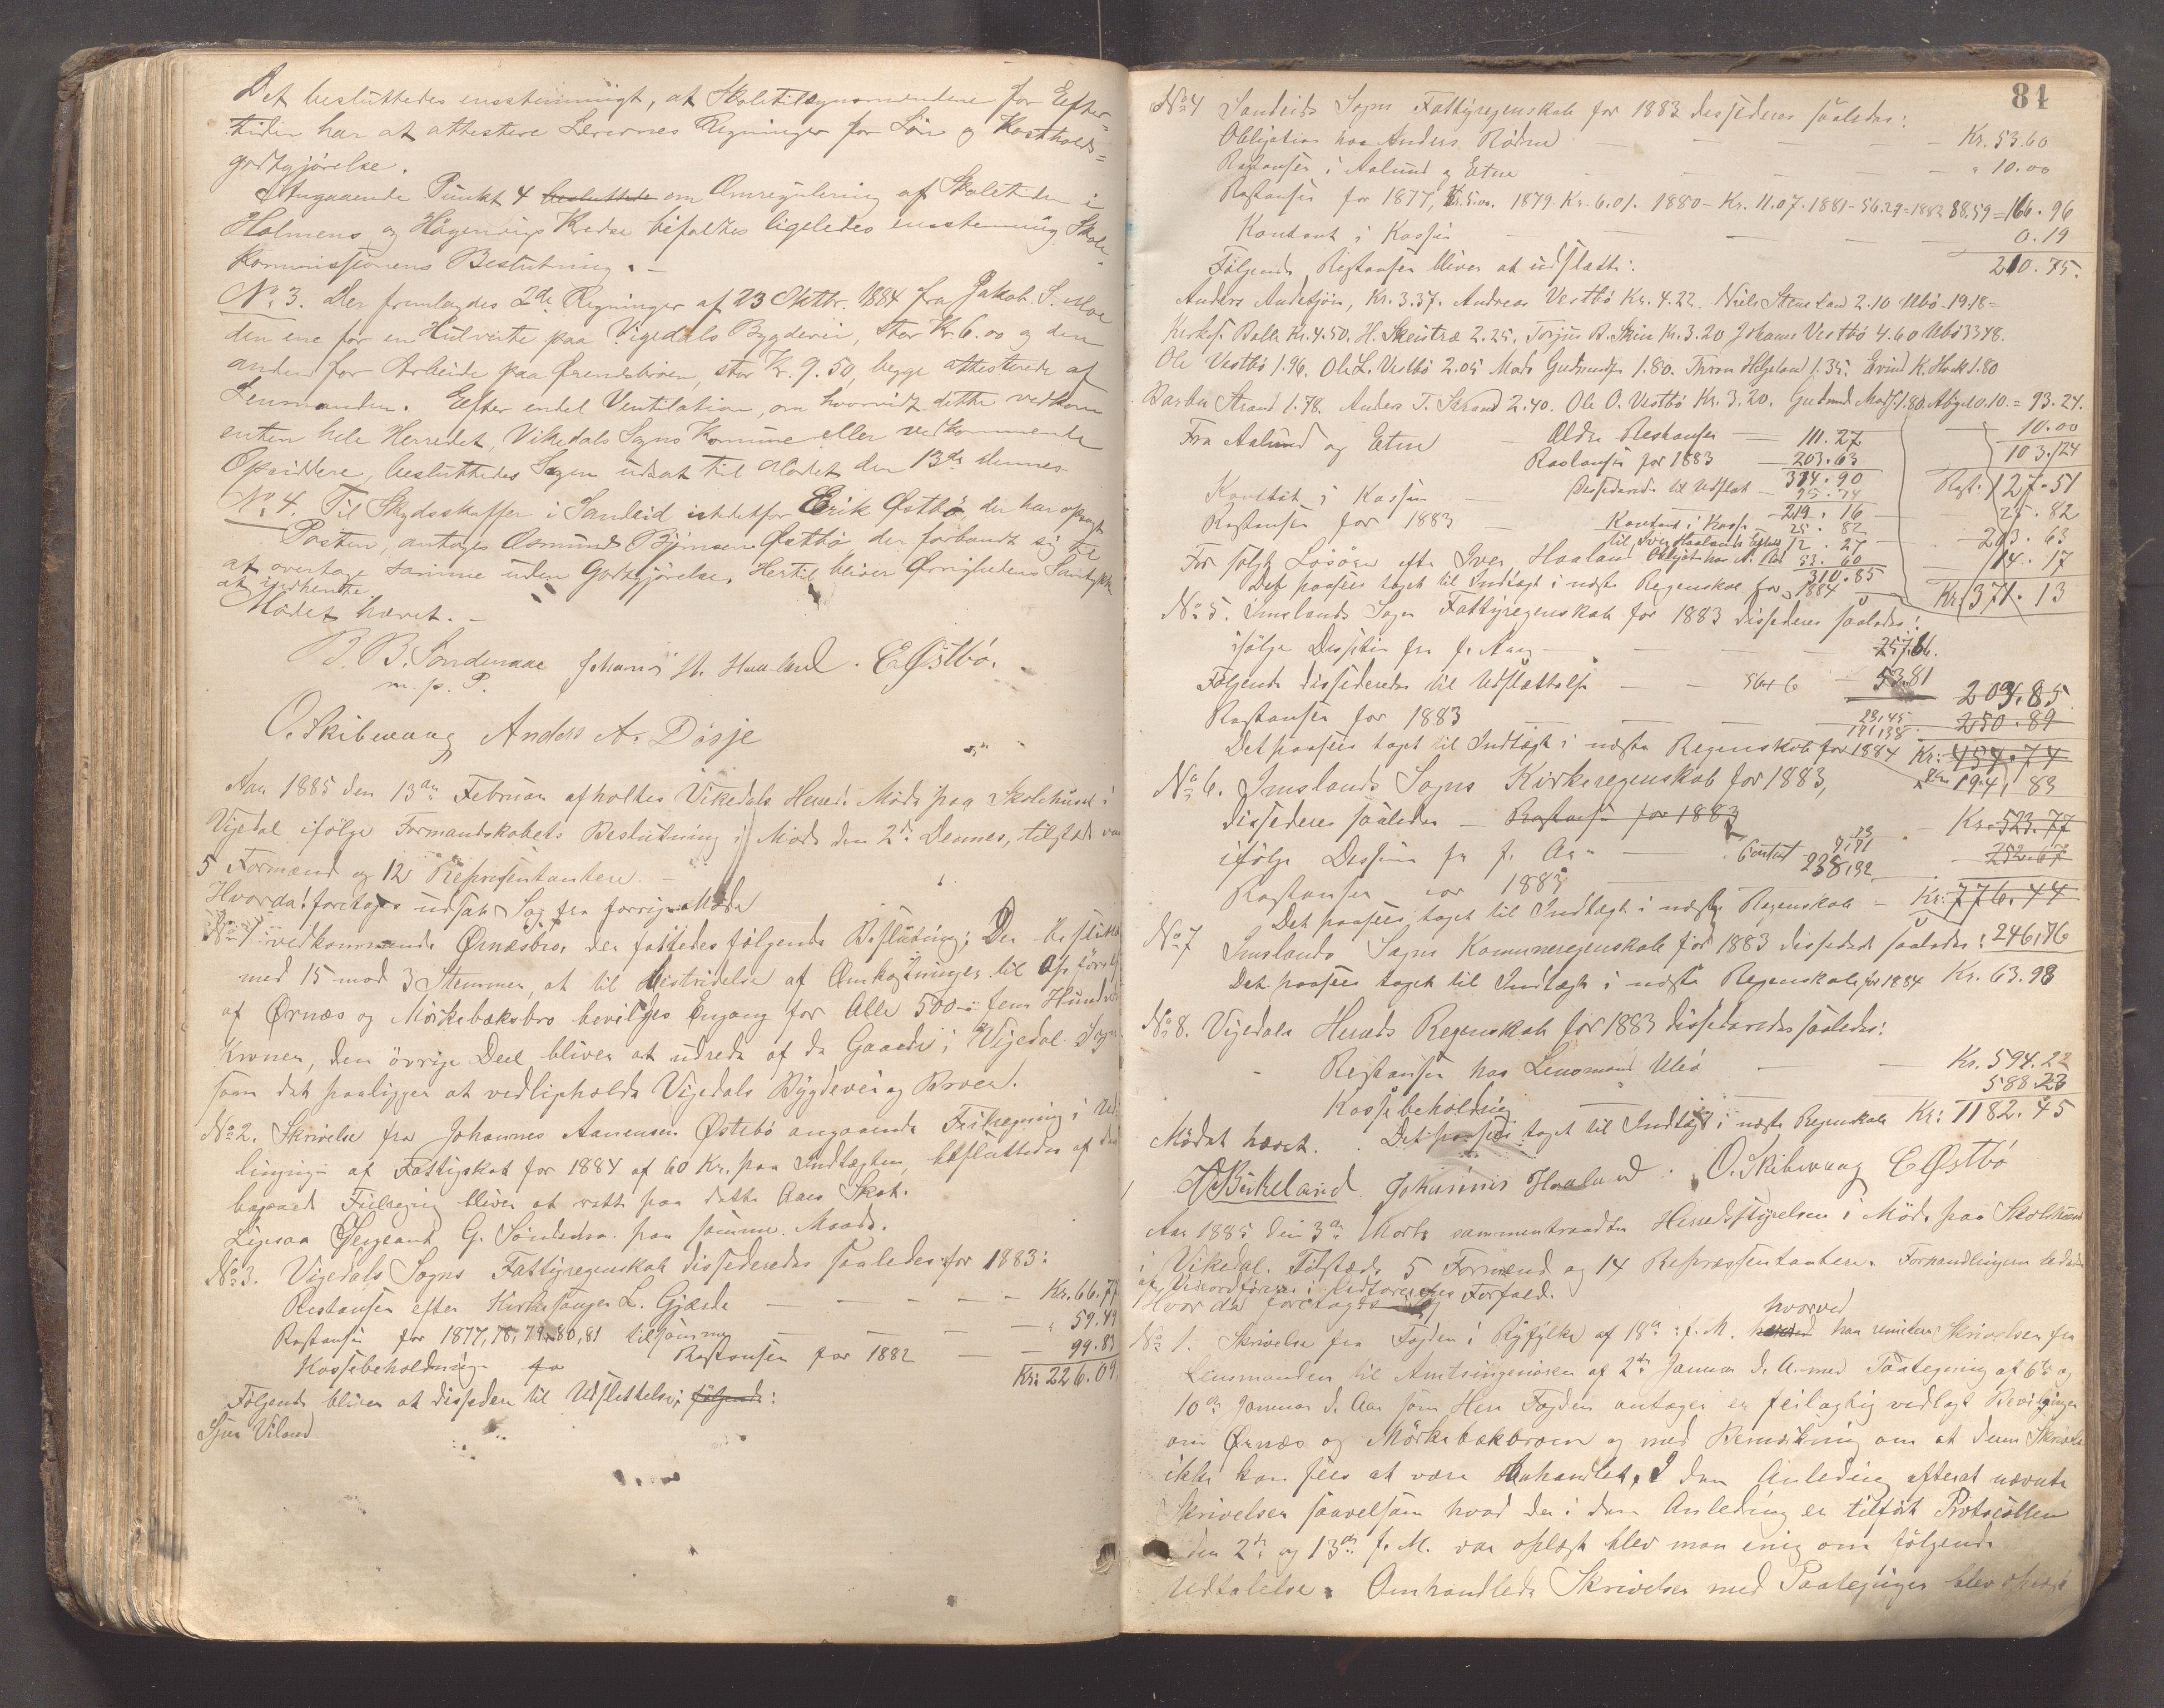 Det besluttedes enstemmigt, at Skoletilsynsmændene for Efter=
tiden har at attestere Lærernes Regninger for Løn og Kostholds=
godtgjörelse.
Angaaende Punkt 4 besluttede om Omregulering af Skoletiden i
Holmens og Hägerings Kredse bifaltes ligeledes enstemmig Skole-
kommissionens Beslutning. -
No 3. Der fremlagdes 2de Regninger af 23 Oktbr. 1884 fra Jakob S.
den ene for en Hulveite paa Vigedals Bygdevei, stor Kr. 6.00 og den
anden for Arbeide paa Ørendsbroen, stor Kr. 9.50, begge attesterede af
Lensmanden. Efter endel Ventilation, om hvorvidt dette vedkom
enten hele Herredet, Vikedals Sogns Komune eller vedkommende
Opsiddere, besluttedes Sagen udsat til Mødet den 13de dennes
No. 4. Til Skydsskaffer i Sandeid istedetfor Erik Østbö, der har opsagt
Posten, antoges Asmund Björnsen Østbö der forbandt sig til
at overtage samme uden Godtgjörelse. Hertil bliver Øvrighedens Samtykke
at indhente
Mødet hævet. -
B. B. Sondenaae Johanis H. Haaland. E Østbö.
m. p. P.
O. Skibevaag Anders A. Døsje
Aar 1885 den 13de Februar afholtes Vikedals Herreds Møde paa Skolehuset i
Vigedal ifölge Formandskabets Beslutning i Møde den 2de Dennes, tilstæde var
5 Formænd og 12 Repræsentantere. -
Hvorda foretoges udsat Sag fra forrige Møde
No 1 vedkommende Ørnæsbro, der fattedes fölgende Beslutning: Der besluttes
med 15 mod 3 Stemmer, at til Bestridelse af Omkostninger til Opförelse
af Ørnæs og Mörkebæksbro bevilges Engang for Alle 500 - fem Hundrede
Kroner, den övrige Deel bliver at udrede af de Gaarde i Vigedal Sogn
som det paaligger at vedligeholde Vigedals Bygdevei og Broer.
No 2. Skrivelse fra Johannes Aanensen Østebö angaaende Feilregning i Ud-
ligning af Fattigskat for 1884 af 60 Kr. paa Indtægten, besluttedes af den
begaaede Feilregning bliver at rette paa dette Aars Skat.
Ligesaa Sergeant G. Söndenaa paa samme Maade.
No 3. Vigedals Sogns Fattigregenskab dessideredes saaledes for 1883:
Restanser efter Kirkesanger L. Gjærde — — — Kr. 66.77
Restanser for 1877, 78, 79, 80, 81 tilsammen — — — " 59.49
Kassebeholdning fra Restanser for 1882 — — 99.83
Kr: 226.09
Fölgende bliver at dessidere til Udslettelse: fölgende:
Sjur Viland
84
No 4 Sandeids Sogns Fattigregenskab for 1883 dessideres saaledes:
Obligation hos Anders Rödne — — — Kr. 53.60
Restanser i Aalund og Etne — — — " 10.00
Restanser for 1877, Kr. 5.00. 1879 Kr. 6.01. 1880 - Kr. 11.07. 1881 - 56.29 - 1882 88.59 = 166.96
Kontant i Kassen — — — 0.19
Fölgende Restanser bliver at udslætte: 210.75.
Anders Andersjön, Kr. 3.37. Andreas Vestbö Kr. 4.22. Niels Stensland 2.10 Ubö 19.18 =
Kirkes. Balle Kr. 4.50. H. Skeistræ 2.25. Torjus R. Skin Kr. 3.20 Johannes Vestbö 4.60 Ubö 33.48.
Ole Vestbö 1.96. Ole L. Vestbö 2.05 Mads Gudmunds 1.80. Thron Helgeland 1.35. Eivind K. Hook 1.80
Barbu Strand 1.78. Anders T. Strand 2.40. Ole O. Vestbö Kr. 3.20. Gudmund Mads 1.80. = 93.24.
Fra Aalund og Etne — Ældre Restanser — 111.27 10.00
Restanser for 1883 — 203.63 103.24
314.90
Kontant i Kassen — Dessideredes til Udslæt — 95.74 Rest. 127.51
219.16 25.82
Restanser for 1883 — Kontant i Kasse — 25.82 203.63
til Iver Haalands Efterl. 12.27
For solgt Lösöre efter Iver Haaland Obligat. hos A. Röd 53.60 14.17
310.85
Det paasees taget til Indtægt i næste Regenskab for 1884 Kr. 371.13
No 5. Imslands Sogns Fattigregenskab for 1883 dessideres saaledes:
ifölge Dessition fra f. Aar — — — 257.66.
Fölgende dessideredes til Udslættelse — — 53.81 203.85
Restanser for 1883 — — — 23,45 250.89
Det paasees taget til Indtægt i næste Regenskab for 1884 Kr: 454.74
194,83
No 6. Imslands Sogns Kirkeregenskab for 1883,
dessideres saaledes — Restanser for 1883 — Kr. 523.77
ifölge Dessition fra f. Aar — Contant 252.67
Restanser for 1883 238,92 — Kr: 776.44
Det paasees taget til Indtægt i næste Regenskab
No 7 Imslands Sogns Komuneregenskab for 1883 dessideredes saaledes: 246,76
Det paasees taget til Indtægt i næste Regenskab for 1884 Kr. 63.98
No 8. Vigedals Herreds Regenskab for 1883 dessideredes saaledes:
Restanser hos Lensmand Ubö — Kr. 594.22
Kassebeholdning — 588.23
Mödet hævet. Det paasees taget til Indtægt i næste Regenskab Kr: 1182.45
A Birkeland. Johannis Haaland. O. Skibevaag E Østbö
Aar 1885 den 3de Marts sammentraadte Herredsstyrelsen i Möde paa Skolehuset
i Vikedal. Tilstæde 5 Formænd og 14 Repræssentantere. Forhandlingen lededes
af Viseordförer i Ordförerens Forfald.
Hvor da foretoges Sag
hvorved
No 1. Skrivelse fra Fogden i Ryfylke af 18de f. M. herved han remitere Skrivelsen fra
Lensmanden til Amtsingeniören af 2de Januar d. A. med Paategning af 6te og
10de Januar d. Aar som Herr Fogden antager er feilagtig vedlagt Bevilgningen
om Ørnæs og Mörkebækbroen og med Bemærkning om at denne Skrivelse
ikke kan sees at være behandlet. I den Anledning efterat nævnte
Skrivelser saavelsom hvad der i den Anledning er tilfört Protocollen
den 2de og 13de f. M. var oplæst blev man enig om fölgende
Udtalelse: Omhandlede Skrivelser med Paategninger blev oplæst